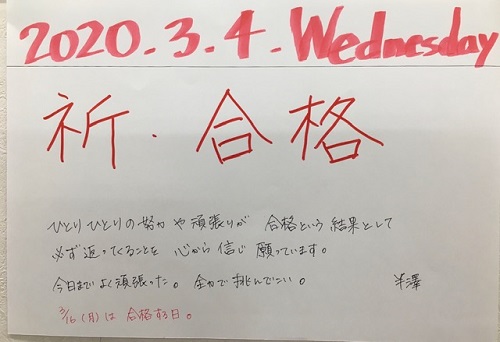 2020.3.4.Wednesday
祈.合格
ひとりひとりの努力や頑張りが 合格という結果として
必ず返ってくることを 心から信じ願っています。
今日までよく頑張った。全力で挑んでこい。 半澤
3/16(月)は 合格する日。